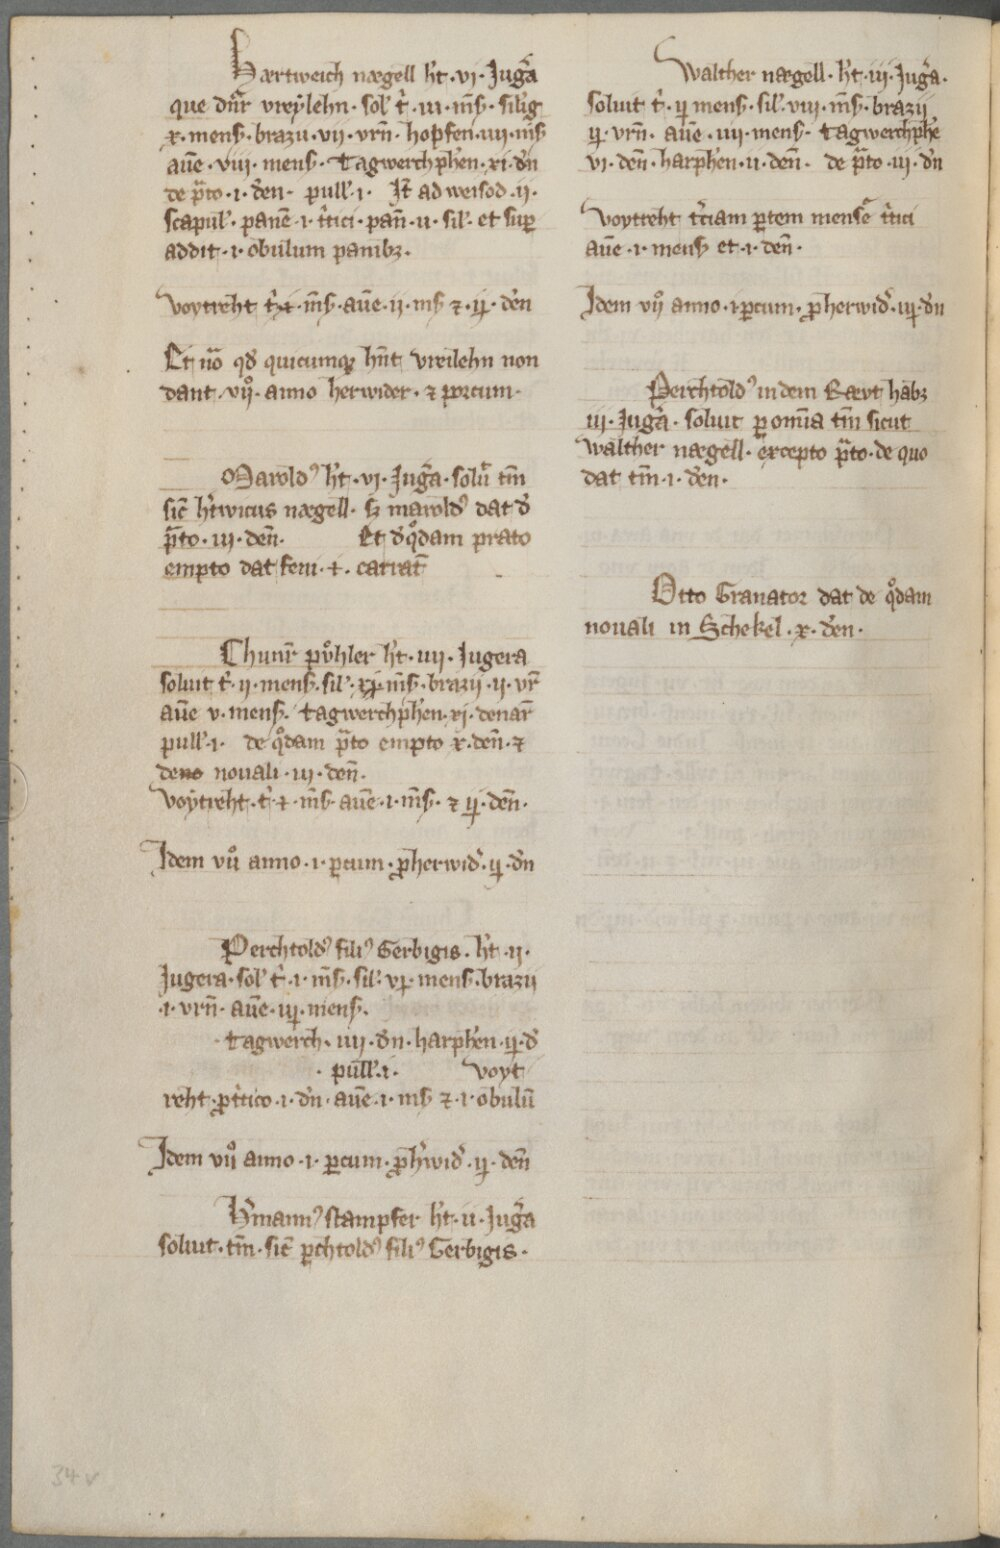 Hærtweich nægell h̄t · vi · Jug̃a
que dn̄r vreẏlehn · sol̛ t̛i · iii · m̄s · silig̛
x · mens · brazii · vii · vrn̄ · hopfen · iiii · m̄s
auē · viii · mens · Tagwerchph̄en · xi · dn̄
de p̃to · i · den̄ · pull̛ · i · It̄ ad weisod · ii ·
scapul̛ · panē · i · t̛tici · pan̄ · ii · sil̛ · et sup̄
addit · i · obulum panibꝫ ·
voytreht t̛i · m̄s · auē · ii · ms ⁊ · ij · den̄
Et nō qđ quicumqꝫ hn̄t vreilehn non
dant · vijͦ · anno herwider · ⁊ porcum ·
Maroldꝰ h̄t · vi · Jug̃a · solũ tm̄
sic̄ h̄twicus nægell · sꝫ maroldꝰ dat đ
p̃to · iii · den̄ · Et đ qͦdam prato
empto dat feni · i · carrat̄
Chunr̄ pvͦhler h̄t · iiii · Jugera
soluit t̛i · ii · mens · sil̛ · xj m̄s · brazii · ii · vr̄
auē v · mens · Tagwerchph̄en · xj · denar̄
pull̛ · i · de qͦdam p̃to empto x · den̄ · ⁊
de novali · iii · den̄ ·
voẏtreht · t̛i · m̄s · auē · i · m̄s · ⁊ ij · den̄ ·
Idem vijͦ anno · i · p̱cum · ꝓherwid̛ · ij · dn̄
Perchtoldꝰ filiꝰ Gerbigis · h̄t · ij ·
Jugera · sol̛ t̛i · i · m̄s · sil̛ · vj · mens · brazii
· i · vrn̄ · auē · iij · mens ·
· Tagwerch · iiii · dn̄ · harph̄en · ij · đ
· pull̛ · i · voyt
reht · ꝓ t̛tico · i · dn̄ · auē · i · ms ⁊ · i · obulū
Idem vijͦ anno · i · p̱cum · ꝓh̄wid̛ · ij · den̄
H̄mannꝰ stampfer h̄t · ii · Jug̃a
soluit · tm̄ · sic̄ p̱chtoldꝰ filiꝰ Gerbigis ·
Walther nægell · h̄t · iii · Jug̃a ·
soluit t̛i · ij mens · sil̛ · viii · m̄s · brazii
ij · vrn̄ · auē · iiij · mens · Tagwerchph̄e
vi · den̄ · harph̄en · ii · den̄ · de p̃to · iii · dn̄
voytreht t̛ciam p̱tem mensē t̛tici
auē · i · mens et · i · den̄ ·
Idem vijͦ anno · i · p̱cum · ꝓherwid̛ · iij · dn̄
Perchtoldꝰ in dem Rævt habꝫ
iii · Jug̃a · soluit p̱ omīa tm̄ sicut
walther nægell · excepto p̃to · de quo
dat tm̄ · i · den̄ ·
Otto Granator dat de qͦdam
novali in Schekel · x · den̄ ·
34 v